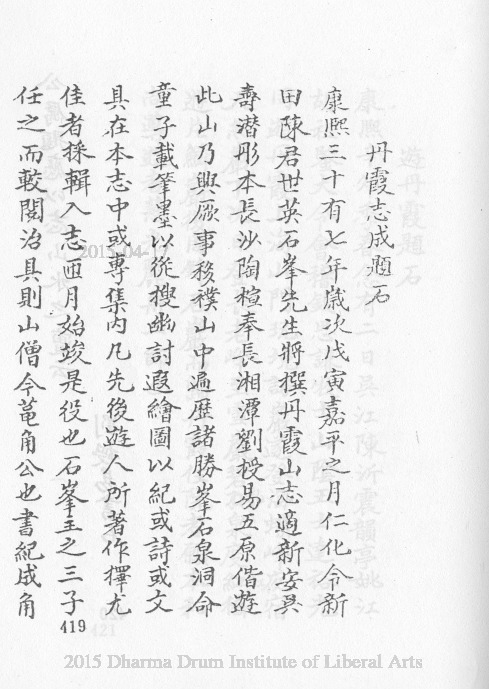 丹霞志成題石
康熙三十有七年歲次戊寅嘉平之月仁化令新
田陳君世英石峯先生將撰丹霞山志適新安吳
壽潛彤本長沙陶煊奉長湘潭劉授易五原偕遊
此山乃與厥事移襆山中遍歷諸勝峯石泉洞命
童子載筆墨以從搜幽討遐繪圖以紀或詩或文
具在本志中或專集內凡先後遊人所著作擇尤
佳者採輯入志兩月始竣是役也石峯主之三子
任之而較閱治具則山僧今䔧角公也書紀成角
419
2015-04-1
2015 Dharma Drum Institute of Liberal Arts